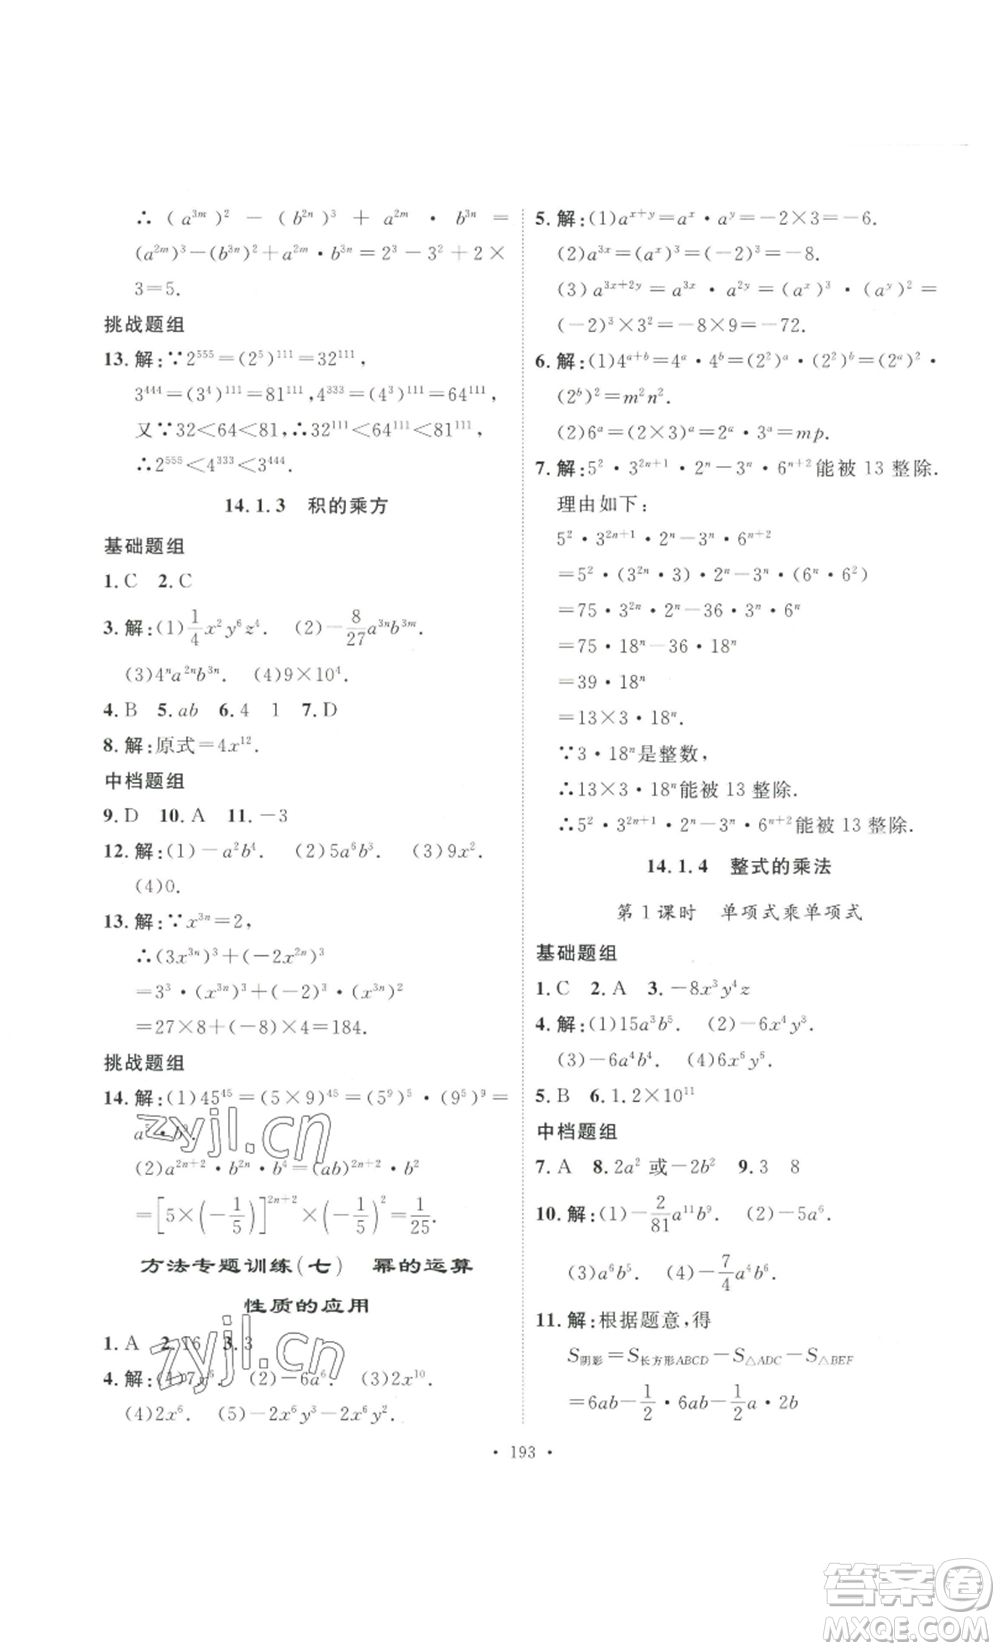 ∴ (a^{3m})^2 − (b^{2n})^3 + a^{2m} · b^{3n} =
(a^{2m})^3−(b^{3n})^2+a^{2m}·b^{3n}=2^3−3^2+2×
3=5.
挑战题组
13.解:∵2^{555}=(2^5)^{111}=32^{111},
3^{444}=(3^4)^{111}=81^{111},4^{333}=(4^3)^{111}=64^{111},
又∵32<64<81,∴32^{111}<64^{111}<81^{111},
∴2^{555}<4^{333}<3^{444}.
14.1.3 积的乘方
基础题组
1.C 2.C
3.解:(1)\frac{1}{4}x^2y^6z^4. (2)−\frac{8}{27}a^{3n}b^{3m}.
(3)4^na^{2n}b^{3n}. (4)9×10^4.
4.B 5.ab 6.4 1 7.D
8.解:原式=4x^{12}.
中档题组
9.D 10.A 11.−3
12.解:(1)−a^2b^4. (2)5a^6b^6. (3)9x^2.
(4)0.
13.解:∵x^{3n}=2,
∴(3x^{3n})^3+(−2x^{2n})^3
=3^3·(x^{3n})^3+(−2)^3·(x^{3n})^2
=27×8+(−8)×4=184.
挑战题组
14.解:(1)45^{45}=(5×9)^{45}=(5^9)^5·(9^5)^9=
(2)a^{2n+2}·b^{2n}·b^4=(ab)^{2n+2}·b^2
=[5×(−\frac{1}{5})]^{2n+2}×(−\frac{1}{5})^2=\frac{1}{25}.
方法专题训练(七) 幂的运算
性质的应用
1.A 2.16 3.3
4.解:(1)7x^6. (2)−5a^6. (3)2x^{10}.
(4)2x^6. (5)−2x^6y^3−2x^6y^2.
5.解:(1)a^{x+y}=a^x·a^y=−2×3=−6.
(2)a^{3x}=(a^x)^3=(−2)^3=−8.
(3)a^{3x+2y}=a^{3x}·a^{2y}=(a^x)^3·(a^y)^2=
(−2)^3×3^2=−8×9=−72.
6.解:(1)4^{a+b}=4^a·4^b=(2^2)^a·(2^2)^b=(2^a)^2·
(2^b)^2=m^2n^2.
(2)6^a=(2×3)^a=2^a·3^a=mp.
7.解:5^2·3^{2n+1}·2^n−3^n·6^{n+2}能被13整除.
理由如下:
5^2·3^{2n+1}·2^n−3^n·6^{n+2}
=5^2·(3^{2n}·3)·2^n−3^n·(6^n·6^2)
=75·3^{2n}·2^n−36·3^n·6^n
=75·18^n−36·18^n
=39·18^n
=13×3·18^n.
∵3·18^n是整数,
∴13×3·18^n能被13整除.
∴5^2·3^{2n+1}·2^n−3^n·6^{n+2}能被13整除.
14.1.4 整式的乘法
第1课时 单项式乘单项式
基础题组
1.C 2.A 3.−8x^3y^4z
4.解:(1)15a^3b^5. (2)−6x^4y^3.
(3)−6a^4b^4. (4)6x^6y^6.
5.B 6.1.2×10^{11}
中档题组
7.A 8.2a^2或−2b^2 9.3 8
10.解:(1)−\frac{2}{81}a^{11}b^9. (2)−5a^6.
(3)a^6b^6. (4)−\frac{7}{4}a^4b^6.
11.解:根据题意,得
S_{阴影}=S_{长方形ABCD}−S_{△ADC}−S_{△BEF}
=6ab−\frac{1}{2}·6ab−\frac{1}{2}a·2b
· 193 ·
zyjl.cn
zyjl.cn
答案圈
MXQE.COM